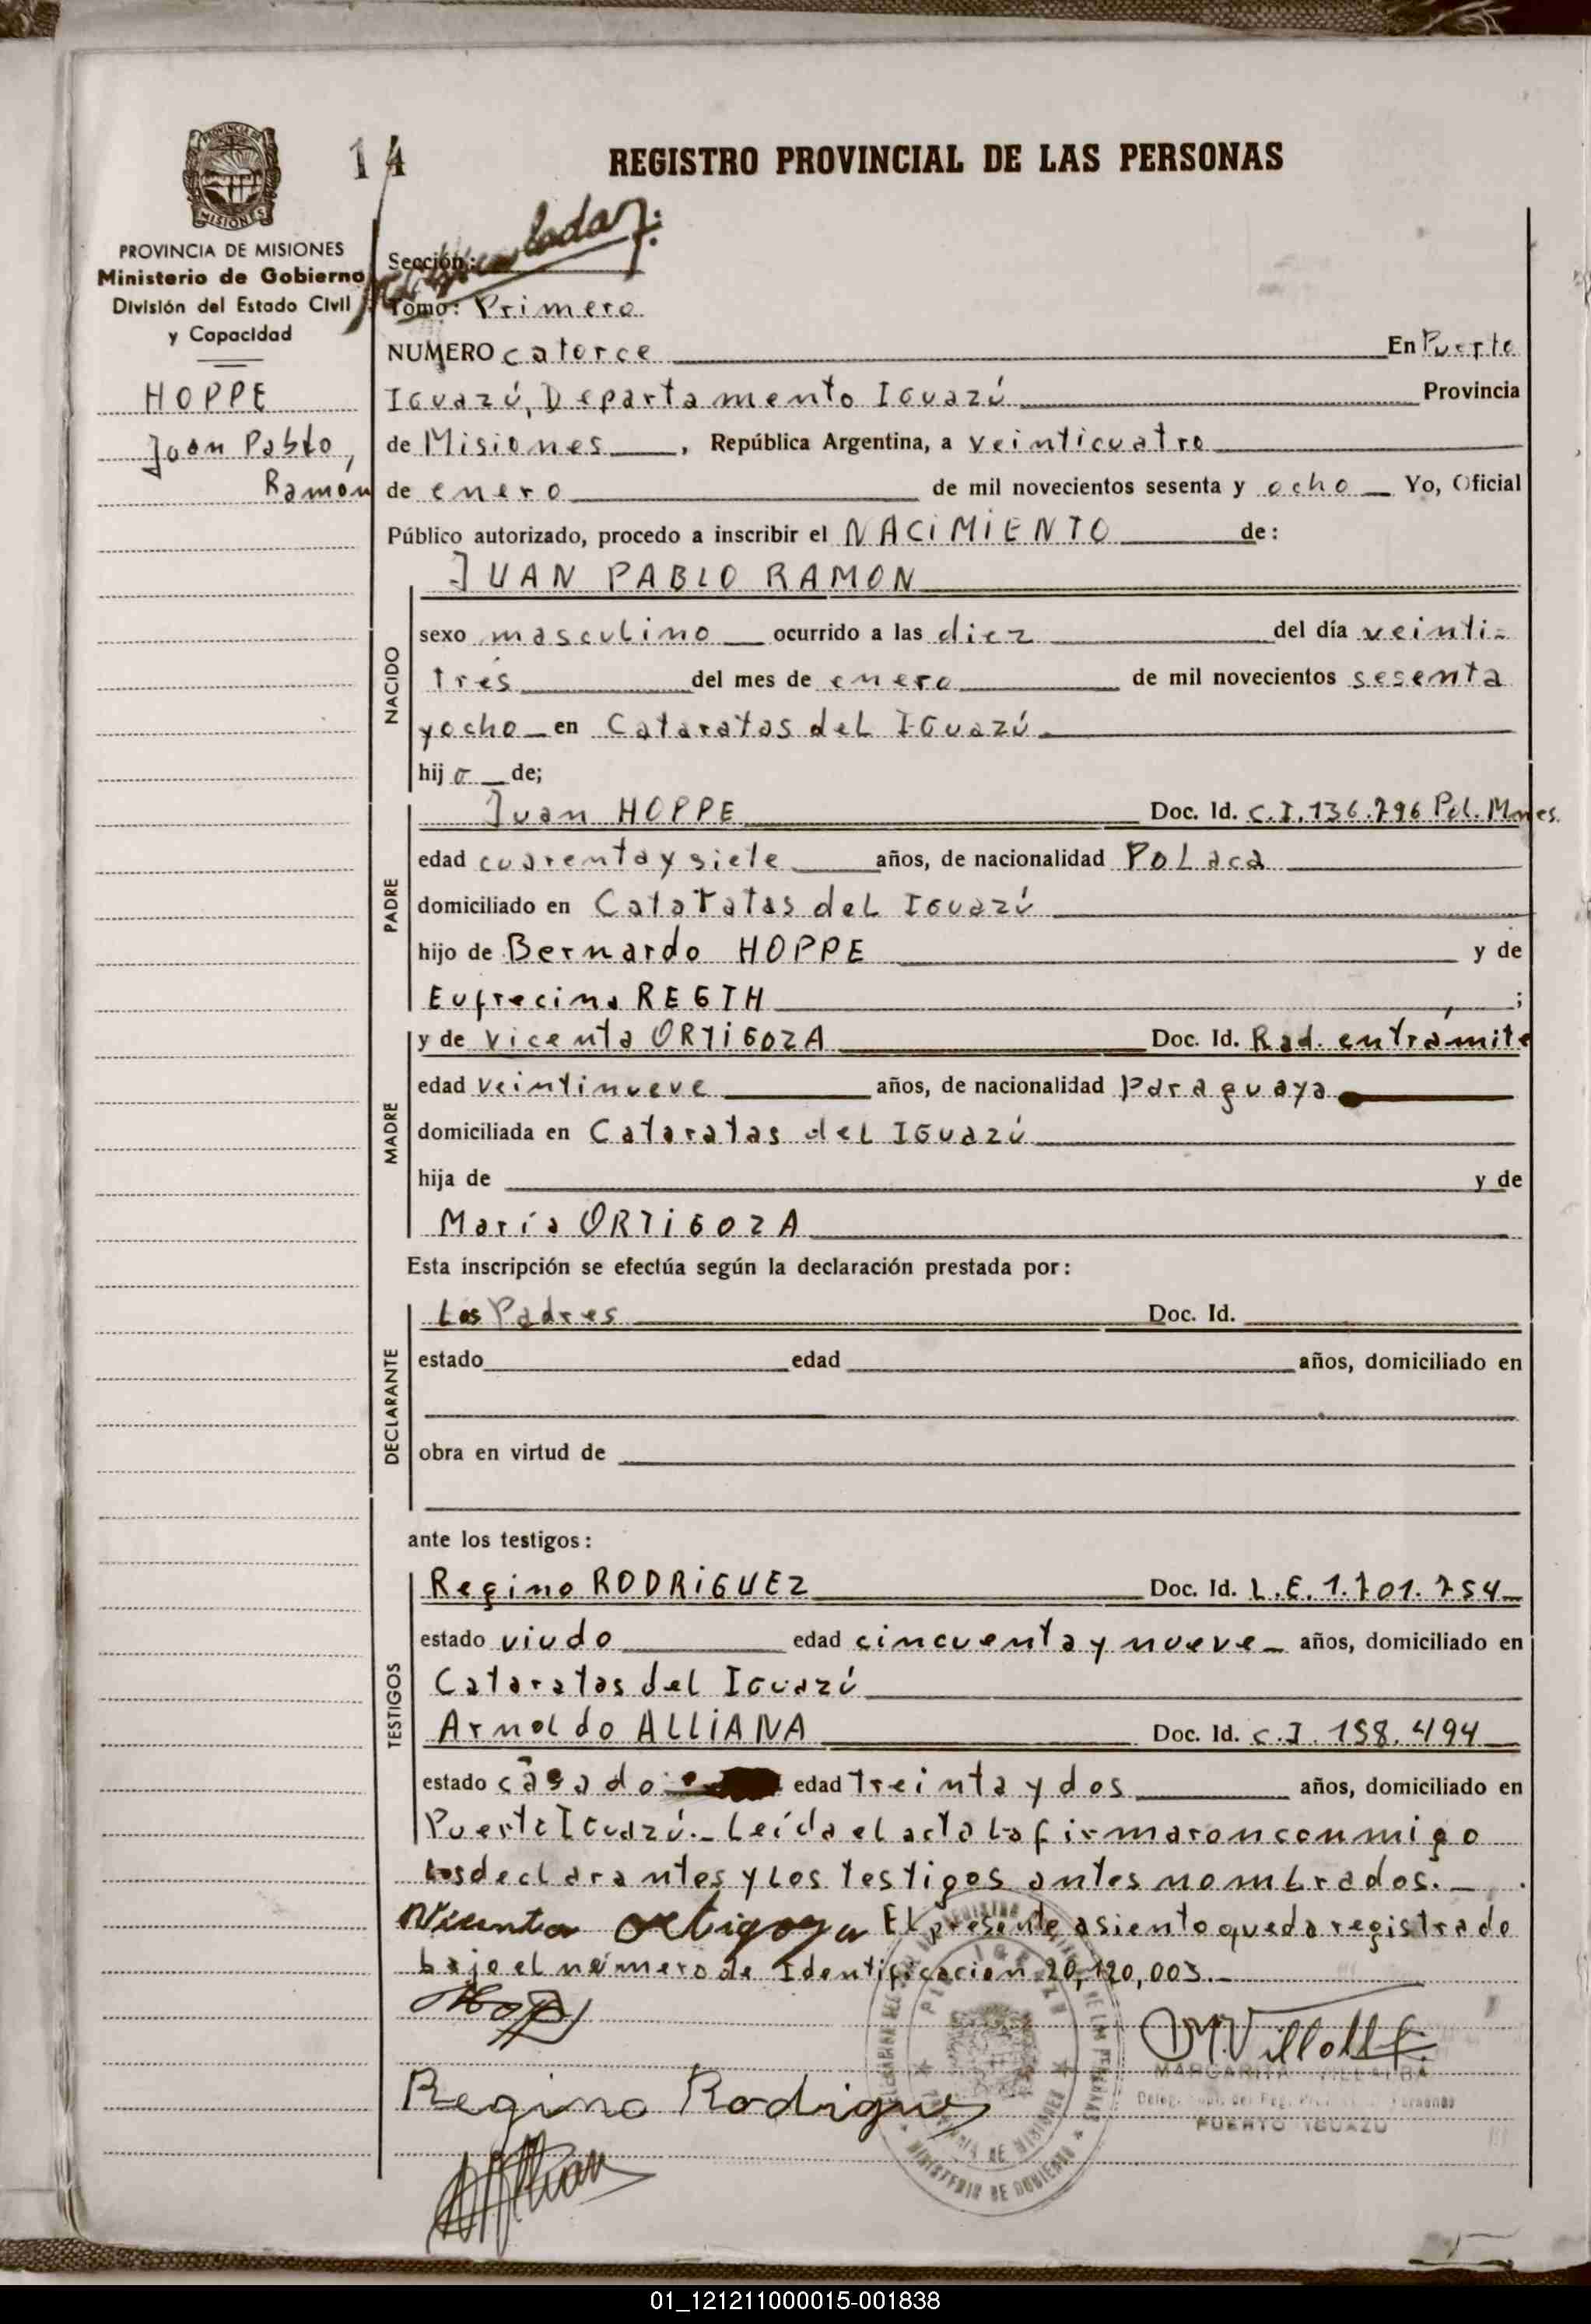 14
REGISTRO PROVINCIAL DE LAS PERSONAS
PROVINCIA DE MISIONES
Ministerio de Gobierno
División del Estado Civil
y Capacidad
HOPPE
Juan Pablo,
Ramon
Sección:
Tomo: Primero
NUMERO catorce En Puerto
Iguazú, Departamento Iguazú Provincia
de Misiones, República Argentina, a veinticuatro
de enero de mil novecientos sesenta y ocho Yo, Oficial
Público autorizado, procedo a inscribir el NACIMIENTO de:
JUAN PABLO RAMON
NACIDO
sexo masculino ocurrido a las diez del día veinti-
trés del mes de enero de mil novecientos sesenta
y ocho en Cataratas del Iguazú
hijo de;
PADRE
Juan HOPPE Doc. Id. C.I. 136.796 Pol. Mnes.
edad cuarenta y siete años, de nacionalidad Polaca
domiciliado en Cataratas del Iguazú
hijo de Bernardo HOPPE y de
Eufrecina REGTH;
MADRE
y de Vicenta ORTIGOZA Doc. Id. Rad. en trámite
edad veintinueve años, de nacionalidad Paraguaya
domiciliada en Cataratas del Iguazú
hija de y de
María ORTIGOZA
Esta inscripción se efectúa según la declaración prestada por:
DECLARANTE
Los Padres Doc. Id.
estado edad años, domiciliado en
obra en virtud de
ante los testigos:
TESTIGOS
Regino RODRIGUEZ Doc. Id. L.E. 1.701.754
estado viudo edad cincuenta y nueve años, domiciliado en
Cataratas del Iguazú
Arnoldo ALLIANA Doc. Id. C.I. 158.494
estado casado edad treinta y dos años, domiciliado en
Puerto Iguazú.- Leída el acta la firmaron conmigo
los declarantes y los testigos antes nombrados.-
Vicenta Ortigoza El presente asiento queda registrado
bajo el número de Identificacion 20,120,003.-
Regino Rodrigues
MARGARITA VILLALBA
PUERTO IGUAZU
MINISTERIO DE GOBIERNO
01_121211000015-001838